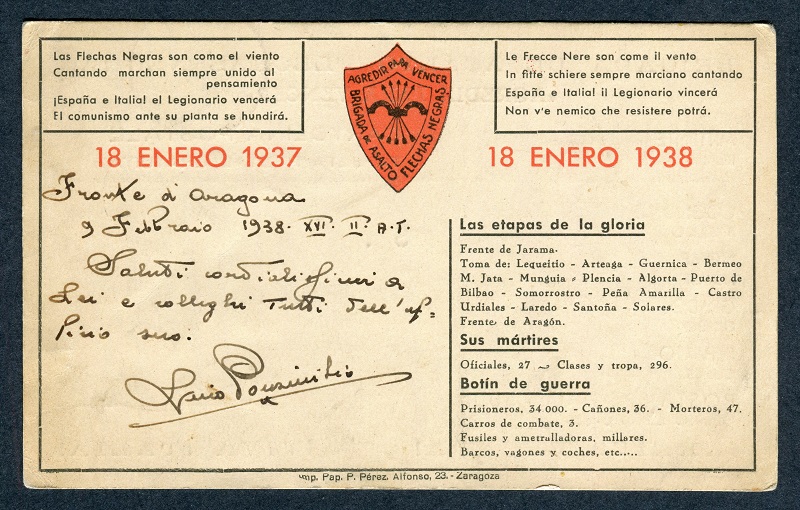 Las Flechas Negras son como el viento
Cantando marchan siempre unido al
pensamiento
¡España e Italia! el Legionario vencerá
El comunismo ante su planta se hundirá.
AGREDIR PARA VENCER
BRIGADA DE ASALTO FLECHAS NEGRAS
Le Frecce Nere son come il vento
In fitte schiere sempre marciano cantando
España e Italia! il Legionario vincerá
Non v'e nemico che resistere potrá.
18 ENERO 1937
18 ENERO 1938
Fronte d'Aragona
9 Febbraio 1938. XVI. II. A.T.
Saluti cordialissimi a
Lei e colleghi tutti dell'uf-
ficio suo.
Las etapas de la gloria
Frente de Jarama.
Toma de: Lequeitio - Arteaga - Guernica - Bermeo
M. Jata - Munguia - Plencia - Algorta - Puerto de
Bilbao - Somorrostro - Peña Amarilla - Castro
Urdiales - Laredo - Santoña - Solares.
Frente de Aragón.
Sus mártires
Oficiales, 27 - Clases y tropa, 296.
Botín de guerra
Prisioneros, 34.000. - Cañones, 36. - Morteros, 47.
Carros de combate, 3.
Fusiles y ametralladoras, millares.
Barcos, vagones y coches, etc.....
Imp. Pap. P. Pérez. Alfonso, 23. - Zaragoza